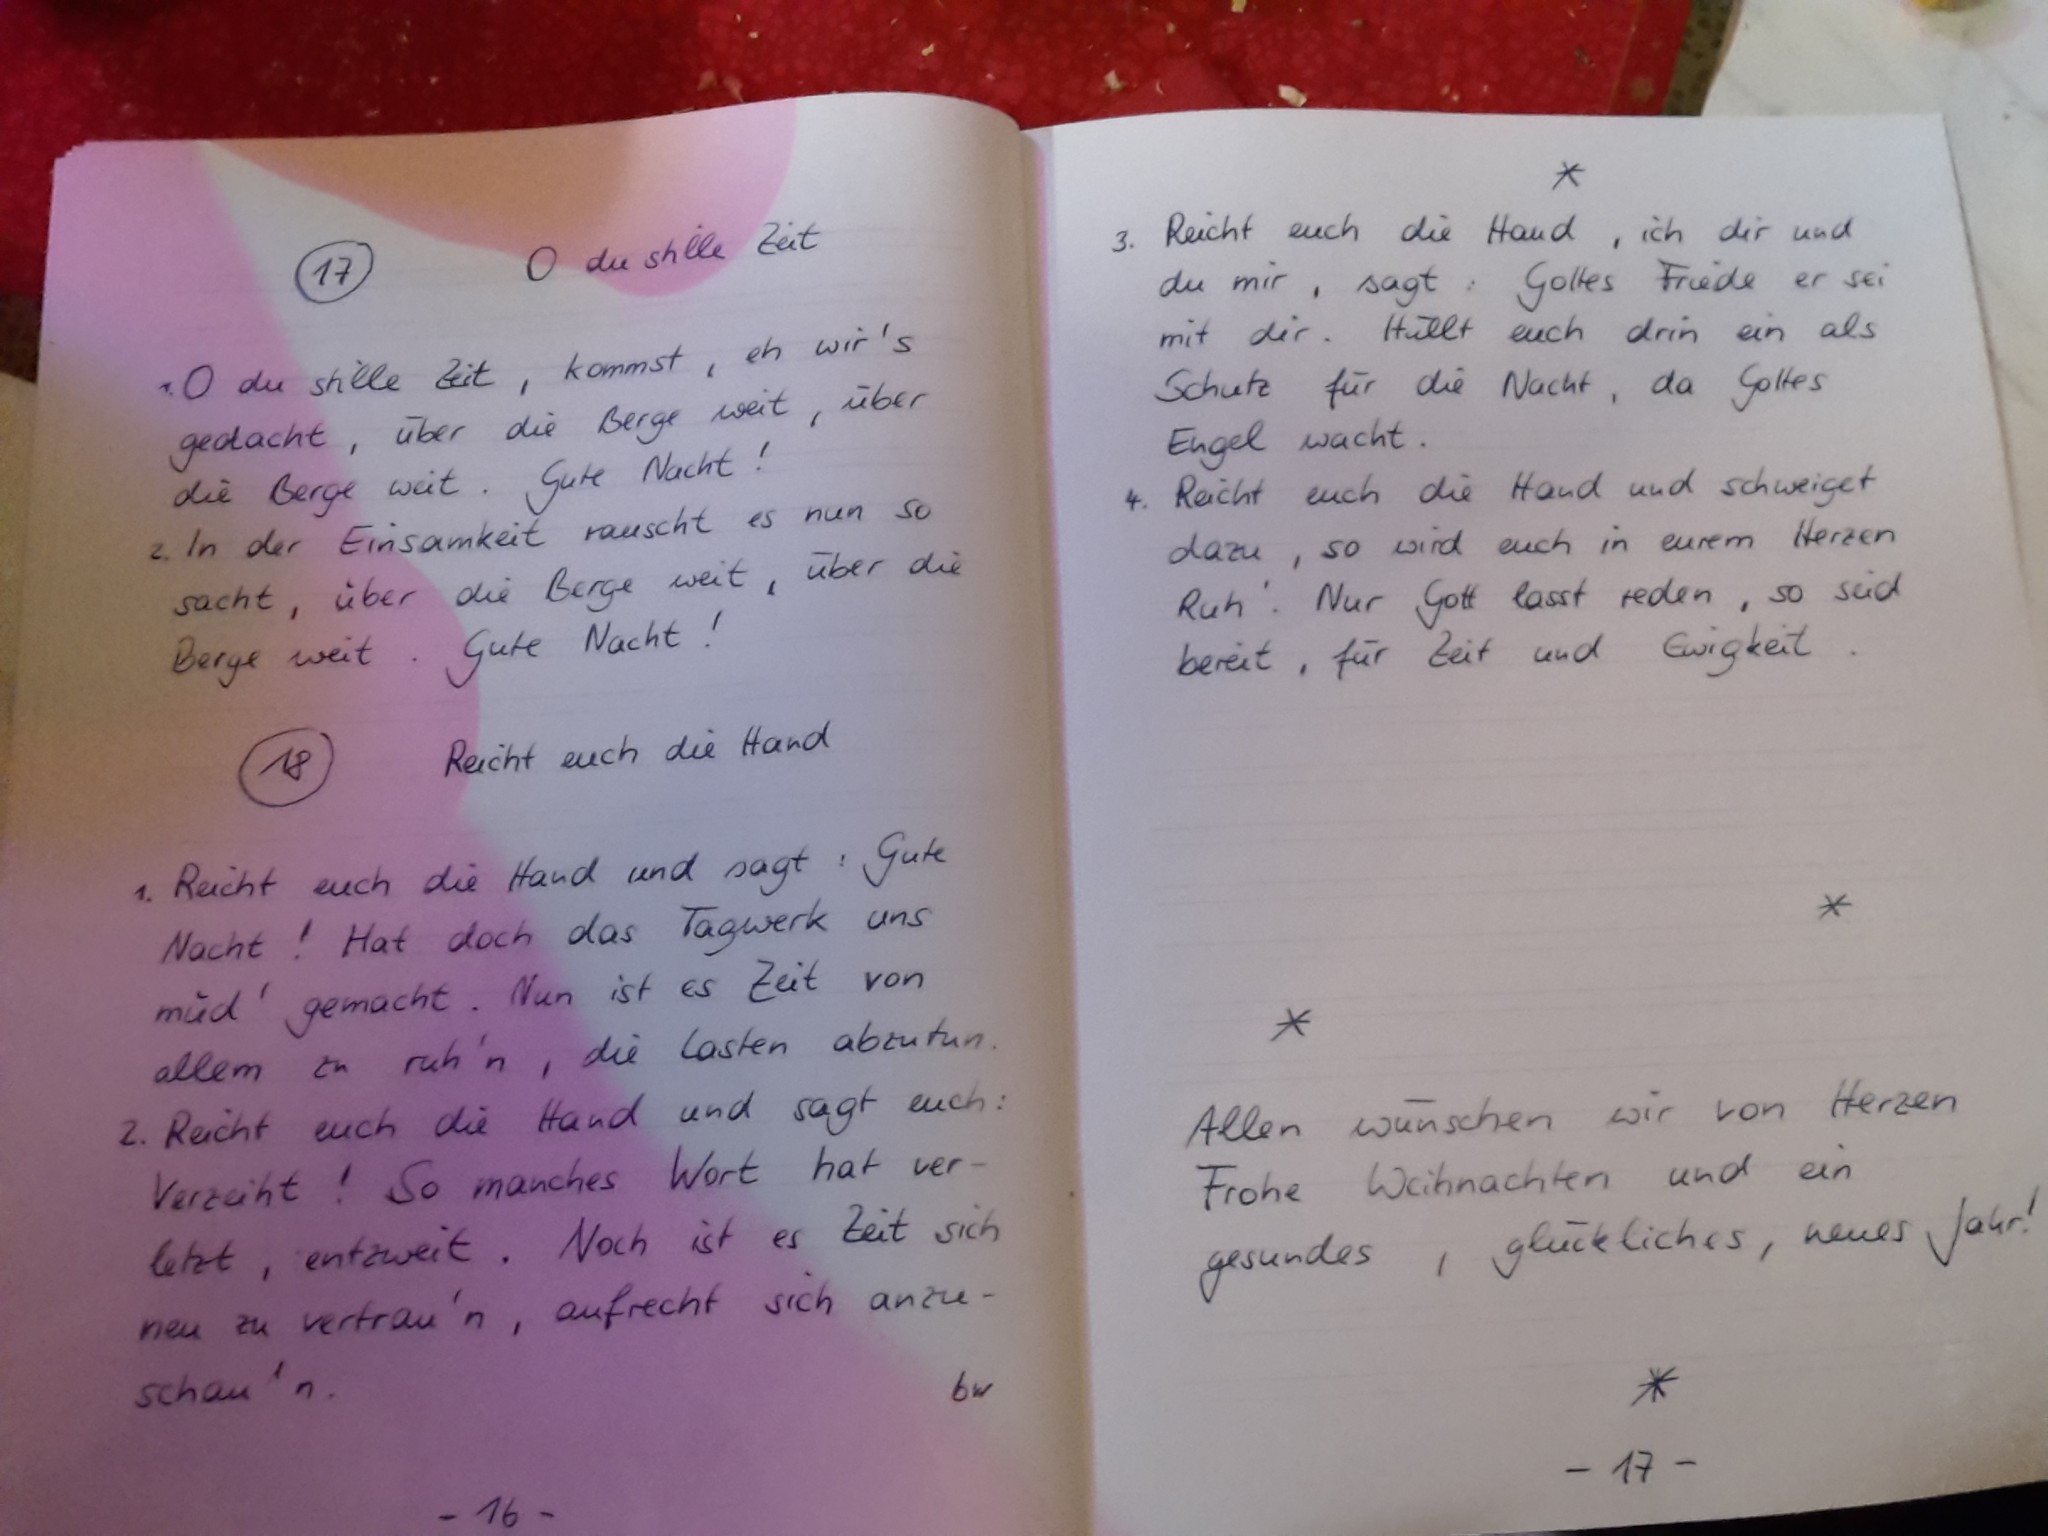 17 O du stille Zeit
1. O du stille Zeit, kommst, eh wir's
gedacht, über die Berge weit, über
die Berge weit. Gute Nacht!
2. In der Einsamkeit rauscht es nun so
sacht, über die Berge weit, über die
Berge weit. Gute Nacht!
18 Reicht euch die Hand
1. Reicht euch die Hand und sagt: Gute
Nacht! Hat doch das Tagwerk uns
müd' gemacht. Nun ist es Zeit von
allem zu ruh'n, die Lasten abzutun.
2. Reicht euch die Hand und sagt euch:
Verzeiht! So manches Wort hat ver-
letzt, entzweit. Noch ist es Zeit sich
neu zu vertrau'n, aufrecht sich anzu-
schau'n. bw
- 16 -
*
3. Reicht euch die Hand, ich dir und
du mir, sagt: Gottes Friede er sei
mit dir. Hüllt euch drin ein als
Schutz für die Nacht, da Gottes
Engel wacht.
4. Reicht euch die Hand und schweiget
dazu, so wird euch in eurem Herzen
Ruh'. Nur Gott lasst reden, so seid
bereit, für Zeit und Ewigkeit.
*
*
Allen wünschen wir von Herzen
Frohe Weihnachten und ein
gesundes, glückliches, neues Jahr!
*
- 17 -